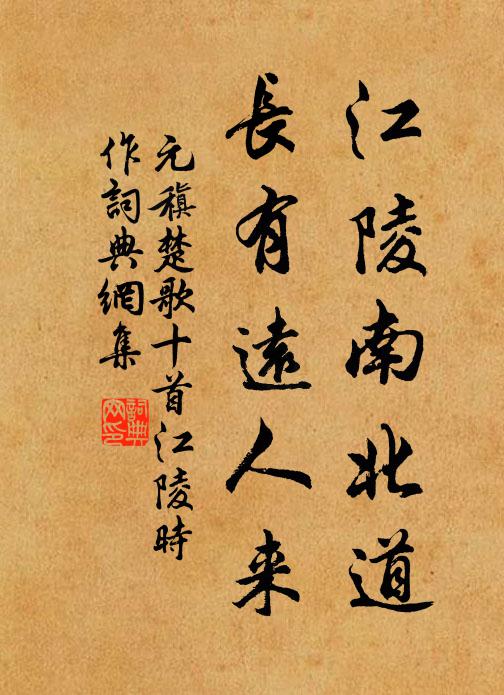 江陵南北道
長有遠人来
元稹楚歌十首江陵時
作詞典網集
詞典
网印